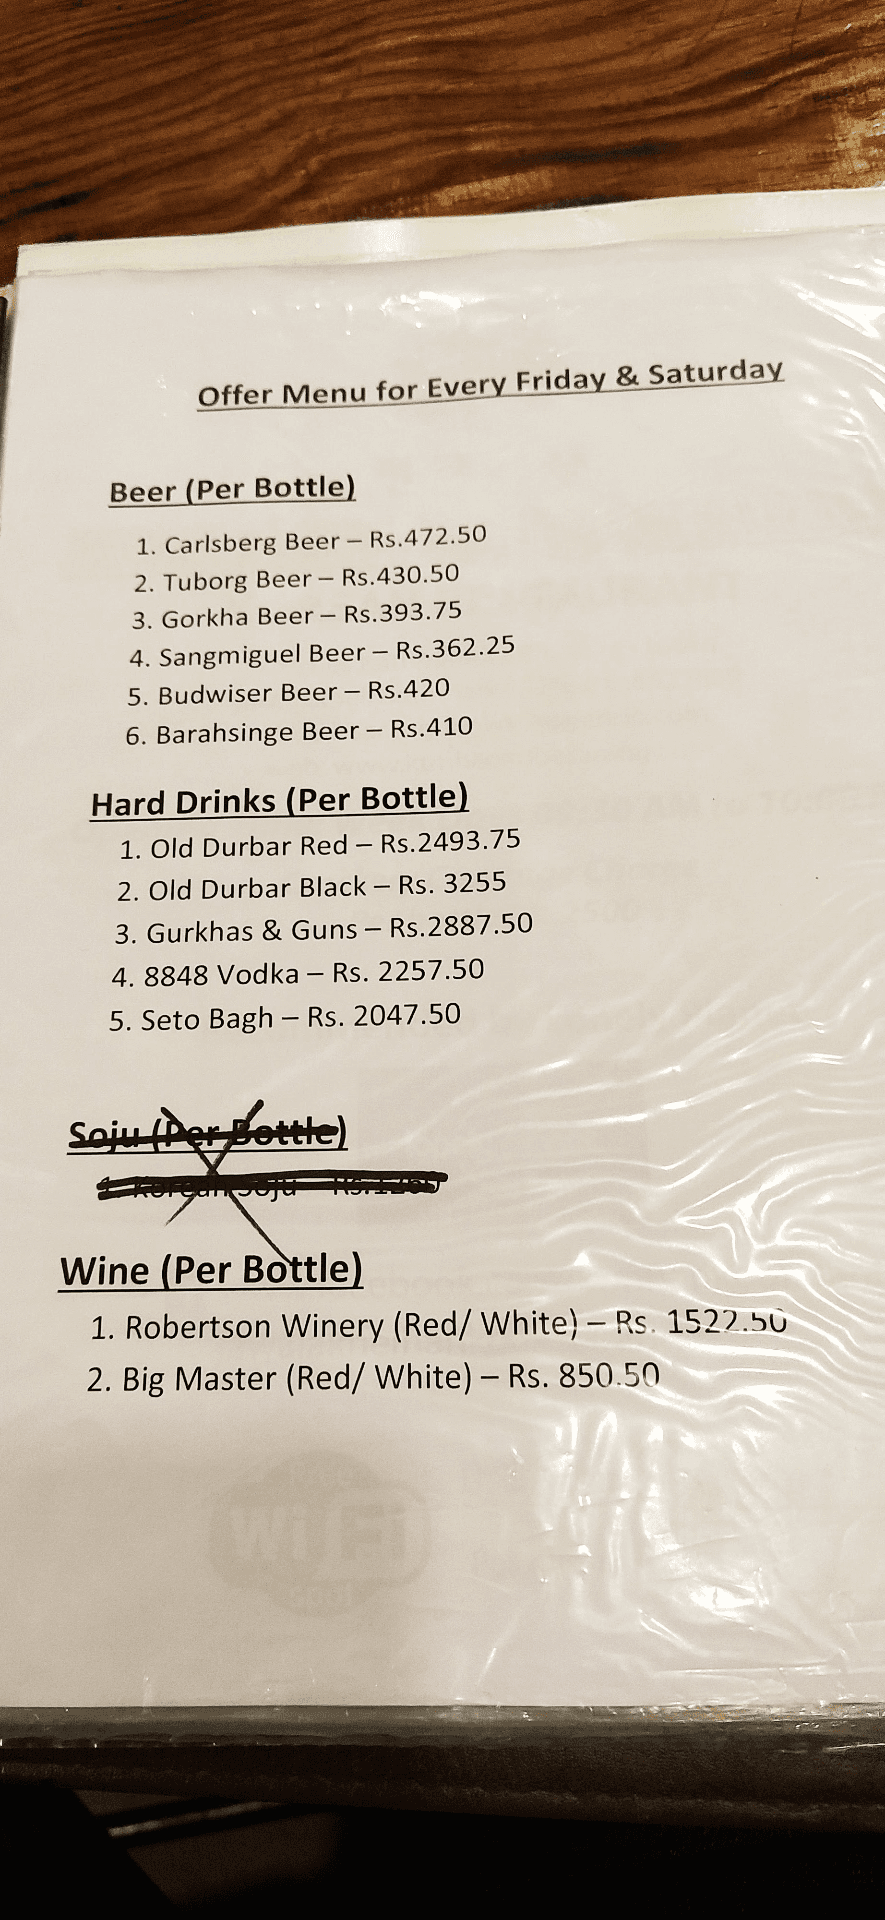 Offer Menu for Every Friday & Saturday
Beer (Per Bottle)
1. Carlsberg Beer – Rs.472.50
2. Tuborg Beer – Rs.430.50
3. Gorkha Beer – Rs.393.75
4. Sangmiguel Beer – Rs.362.25
5. Budwiser Beer – Rs.420
6. Barahsinge Beer – Rs.410
Hard Drinks (Per Bottle)
1. Old Durbar Red – Rs.2493.75
2. Old Durbar Black – Rs. 3255
3. Gurkhas & Guns – Rs.2887.50
4. 8848 Vodka – Rs. 2257.50
5. Seto Bagh – Rs. 2047.50
Soju (Per Bottle)
1. Korean Soju – Rs.1260
Wine (Per Bottle)
1. Robertson Winery (Red/ White) – Rs. 1522.50
2. Big Master (Red/ White) – Rs. 850.50
Wi Fi